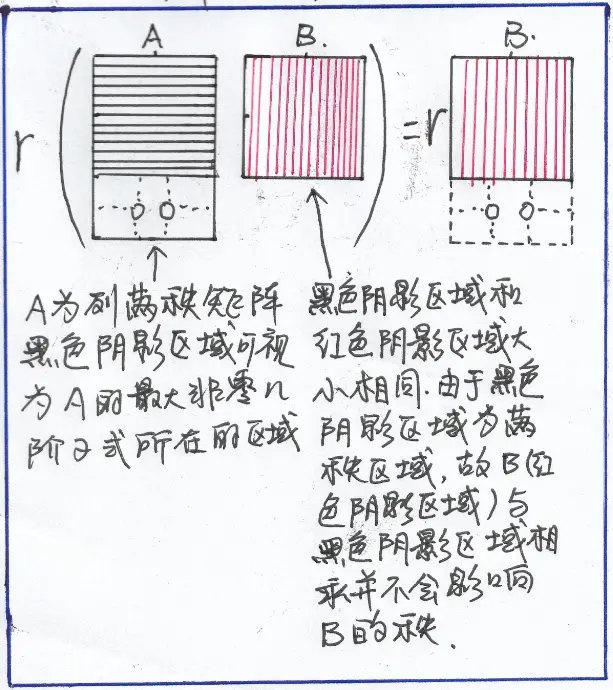 A B. B.
r ( ) = r
0 0 0 0
A为列满秩矩阵
黑色阴影区域可视
为A的最大非零n
阶子式所在的区域
黑色阴影区域和
红色阴影区域大
小相同.由于黑色
阴影区域为满
秩区域,故B(红
色阴影区域)与
黑色阴影区域相
乘并不会影响
B的秩.